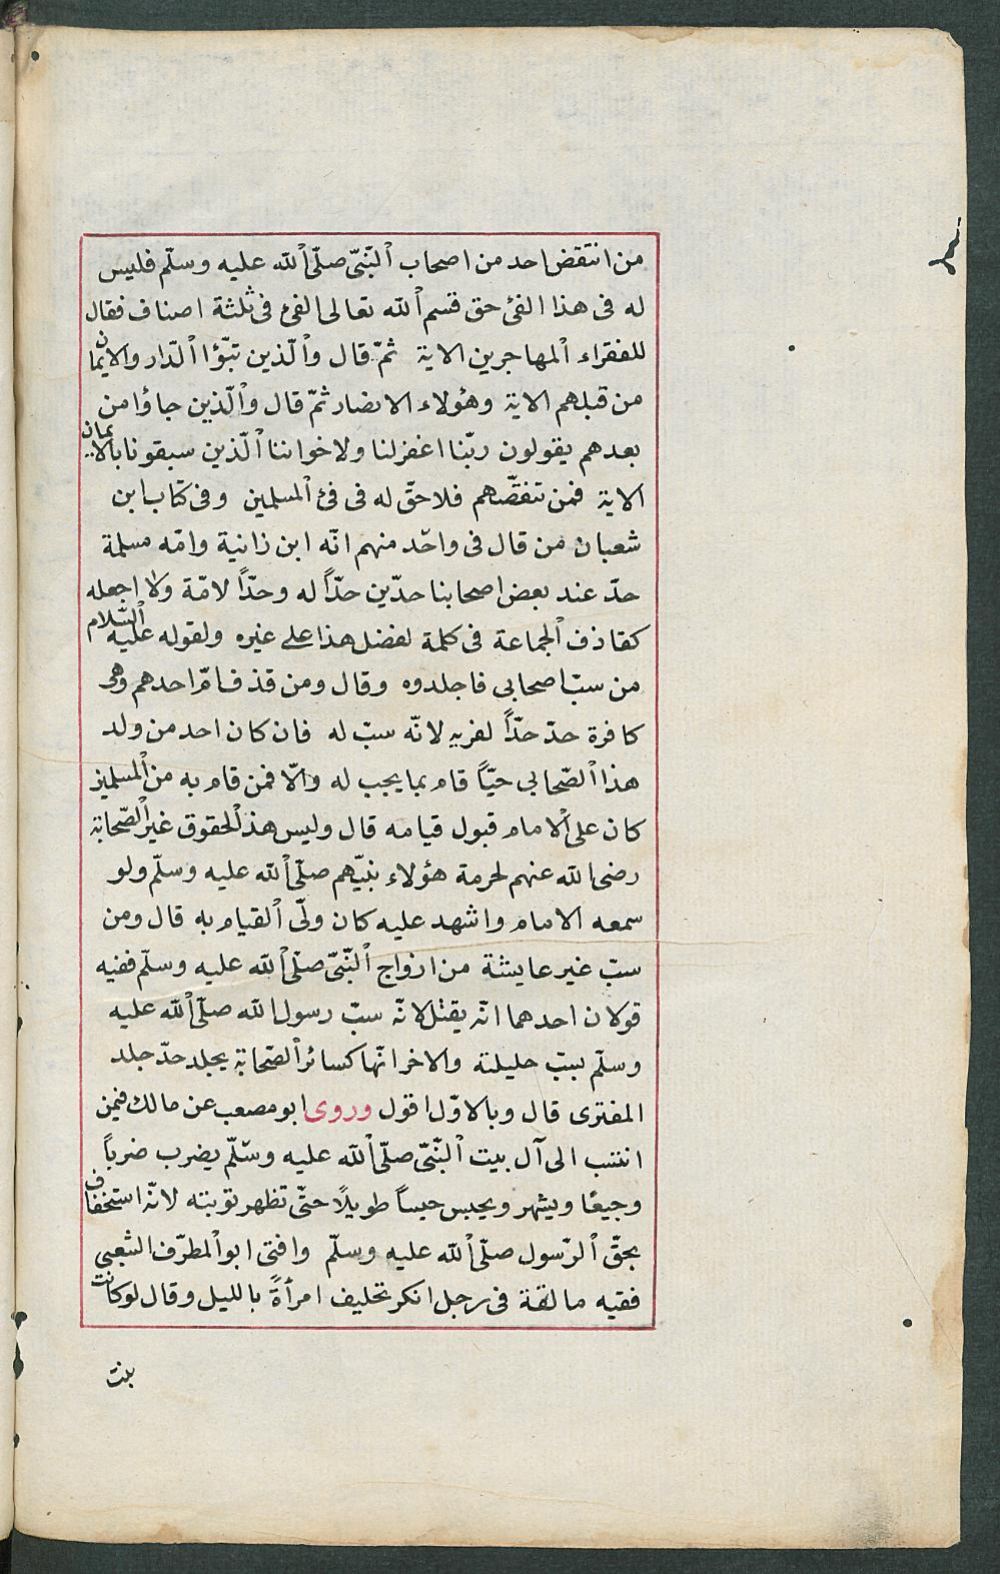 من انتقض احد من اصحاب النّبىّ صلّى الله عليه وسلّم فليس
له فى هذا الفئ حق قسم الله تعالى الفئ فى ثلثة اصناف فقال
للفقراء المهاجرين الاية ثمّ قال والّذين تبّؤا الدّار والايمان
من قبلهم الاية وهؤلاء الانصار ثمّ قال والّذين جاؤا من
بعدهم يقولون ربّنا اغفر لنا ولاخواننا الّذين سبقونا بالايمان
الاية فمن تنقّصهم فلا حقّ له فى فئ المسلمين وفى كتاب ابن
شعبان من قال فى واحد منهم انّه ابن زانية وامّه مسلمة
حدّ عند بعض اصحابنا حدّين حدّاً له وحدّاً لامّه ولا اجعله
كقاذف الجماعة فى كلمة لفضل هذا على غيره ولقوله عليه السّلام
من سبّ اصحابى فاجلدوه وقال ومن قذف امّ احدهم وهى
كافرة حدّ حدّاً لفريه لانّه سبّ له فان كان احد من ولد
هذا الصّحابى حيّاً قام بما يجب له والّا فمن قام به من المسلمين
كان على الامام قبول قيامه قال وليس هذ الحقوق غير الصّحابة
رضى الله عنهم لحرمة هؤلاء نبيّهم صلّى الله عليه وسلّم ولو
سمعه الامام واشهد عليه كان ولّى القيام به قال ومن
سبّ غير عايشة من ازواج النّبىّ صلّى الله عليه وسلّم ففيه
قولان احدهما انّه يقتل لانّه سبّ رسول الله صلّى الله عليه
وسلّم بسبّ حليلته والاخر انّها كسائر الصّحابة يجلد حدّ جلد
المفترى قال وبالاوّل اقول وروى ابو مصعب عن مالك فيمن
انتسب الى آل بيت النّبىّ صلّى الله عليه وسّلّم يضرب ضرباً
وجيعًا ويشهر ويحبس حبساً طويلًا حتّى تظهر توبته لانّه استخفاف
بحقّ الرّسول صلّى الله عليه وسلّم وافتى ابو المطرّف الشّعبى
فقيه مالقة فى رجل انكر تحليف امرأةً بالليل وقال لو كانت
بنت